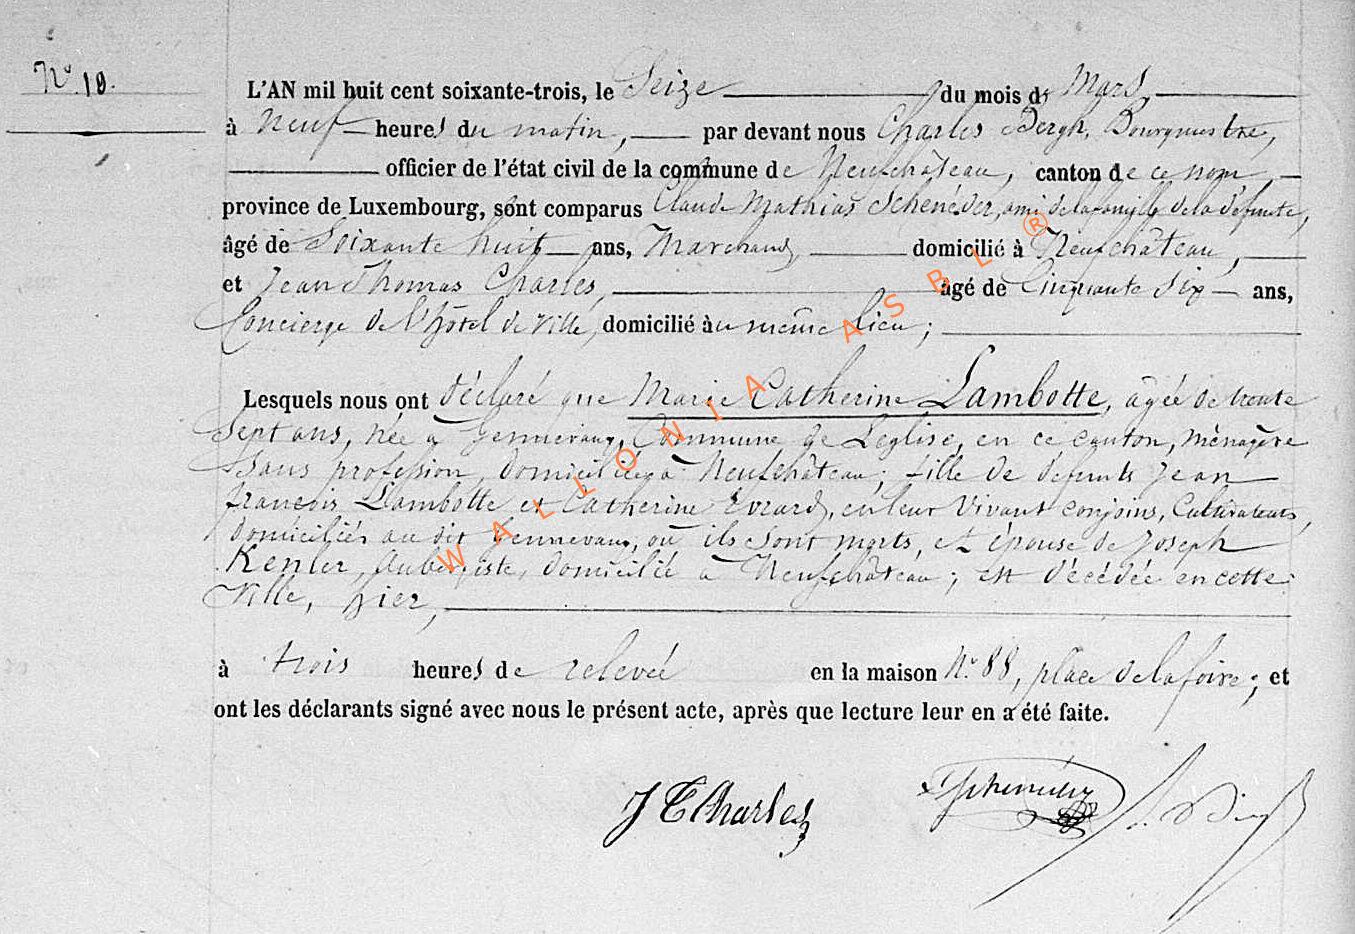 N.º 10.
L'AN mil huit cent soixante-trois, le Seize du mois de Mars,
à Neuf heures du matin, par devant nous Charles Bergh, Bourgmestre,
officier de l'état civil de la commune de Neufchâteau, canton de ce nom,
province de Luxembourg, sont comparus Claude Mathias Schenéder, ami de la famille de la défunte,
âgé de Soixante huit ans, Marchand, domicilié à Neufchâteau,
et Jean Thomas Charles, âgé de Cinquante Six ans,
Concierge de l'hôtel de Ville, domicilié au même lieu;
Lesquels nous ont déclaré que Marie Catherine Lambotte, âgée de trente
Sept ans, née à Gennevaux, Commune de Léglise, en ce canton, ménagère
Sans profession, domiciliée à Neufchâteau; fille de défunts Jean
françois Lambotte et Catherine Evrard, en leur Vivant conjoins, Cultivateurs,
domiciliés au dit Gennevaux, où ils sont morts, et épouse de Joseph
Kenler, Aubergiste, domicilié à Neufchâteau; est décédée en cette
Ville, hier,
à trois heures de relevée en la maison N.º 88, place de la foire; et
ont les déclarants signé avec nous le présent acte, après que lecture leur en a été faite.
J T Charles Schenéder
WALLONIA ASBL ®